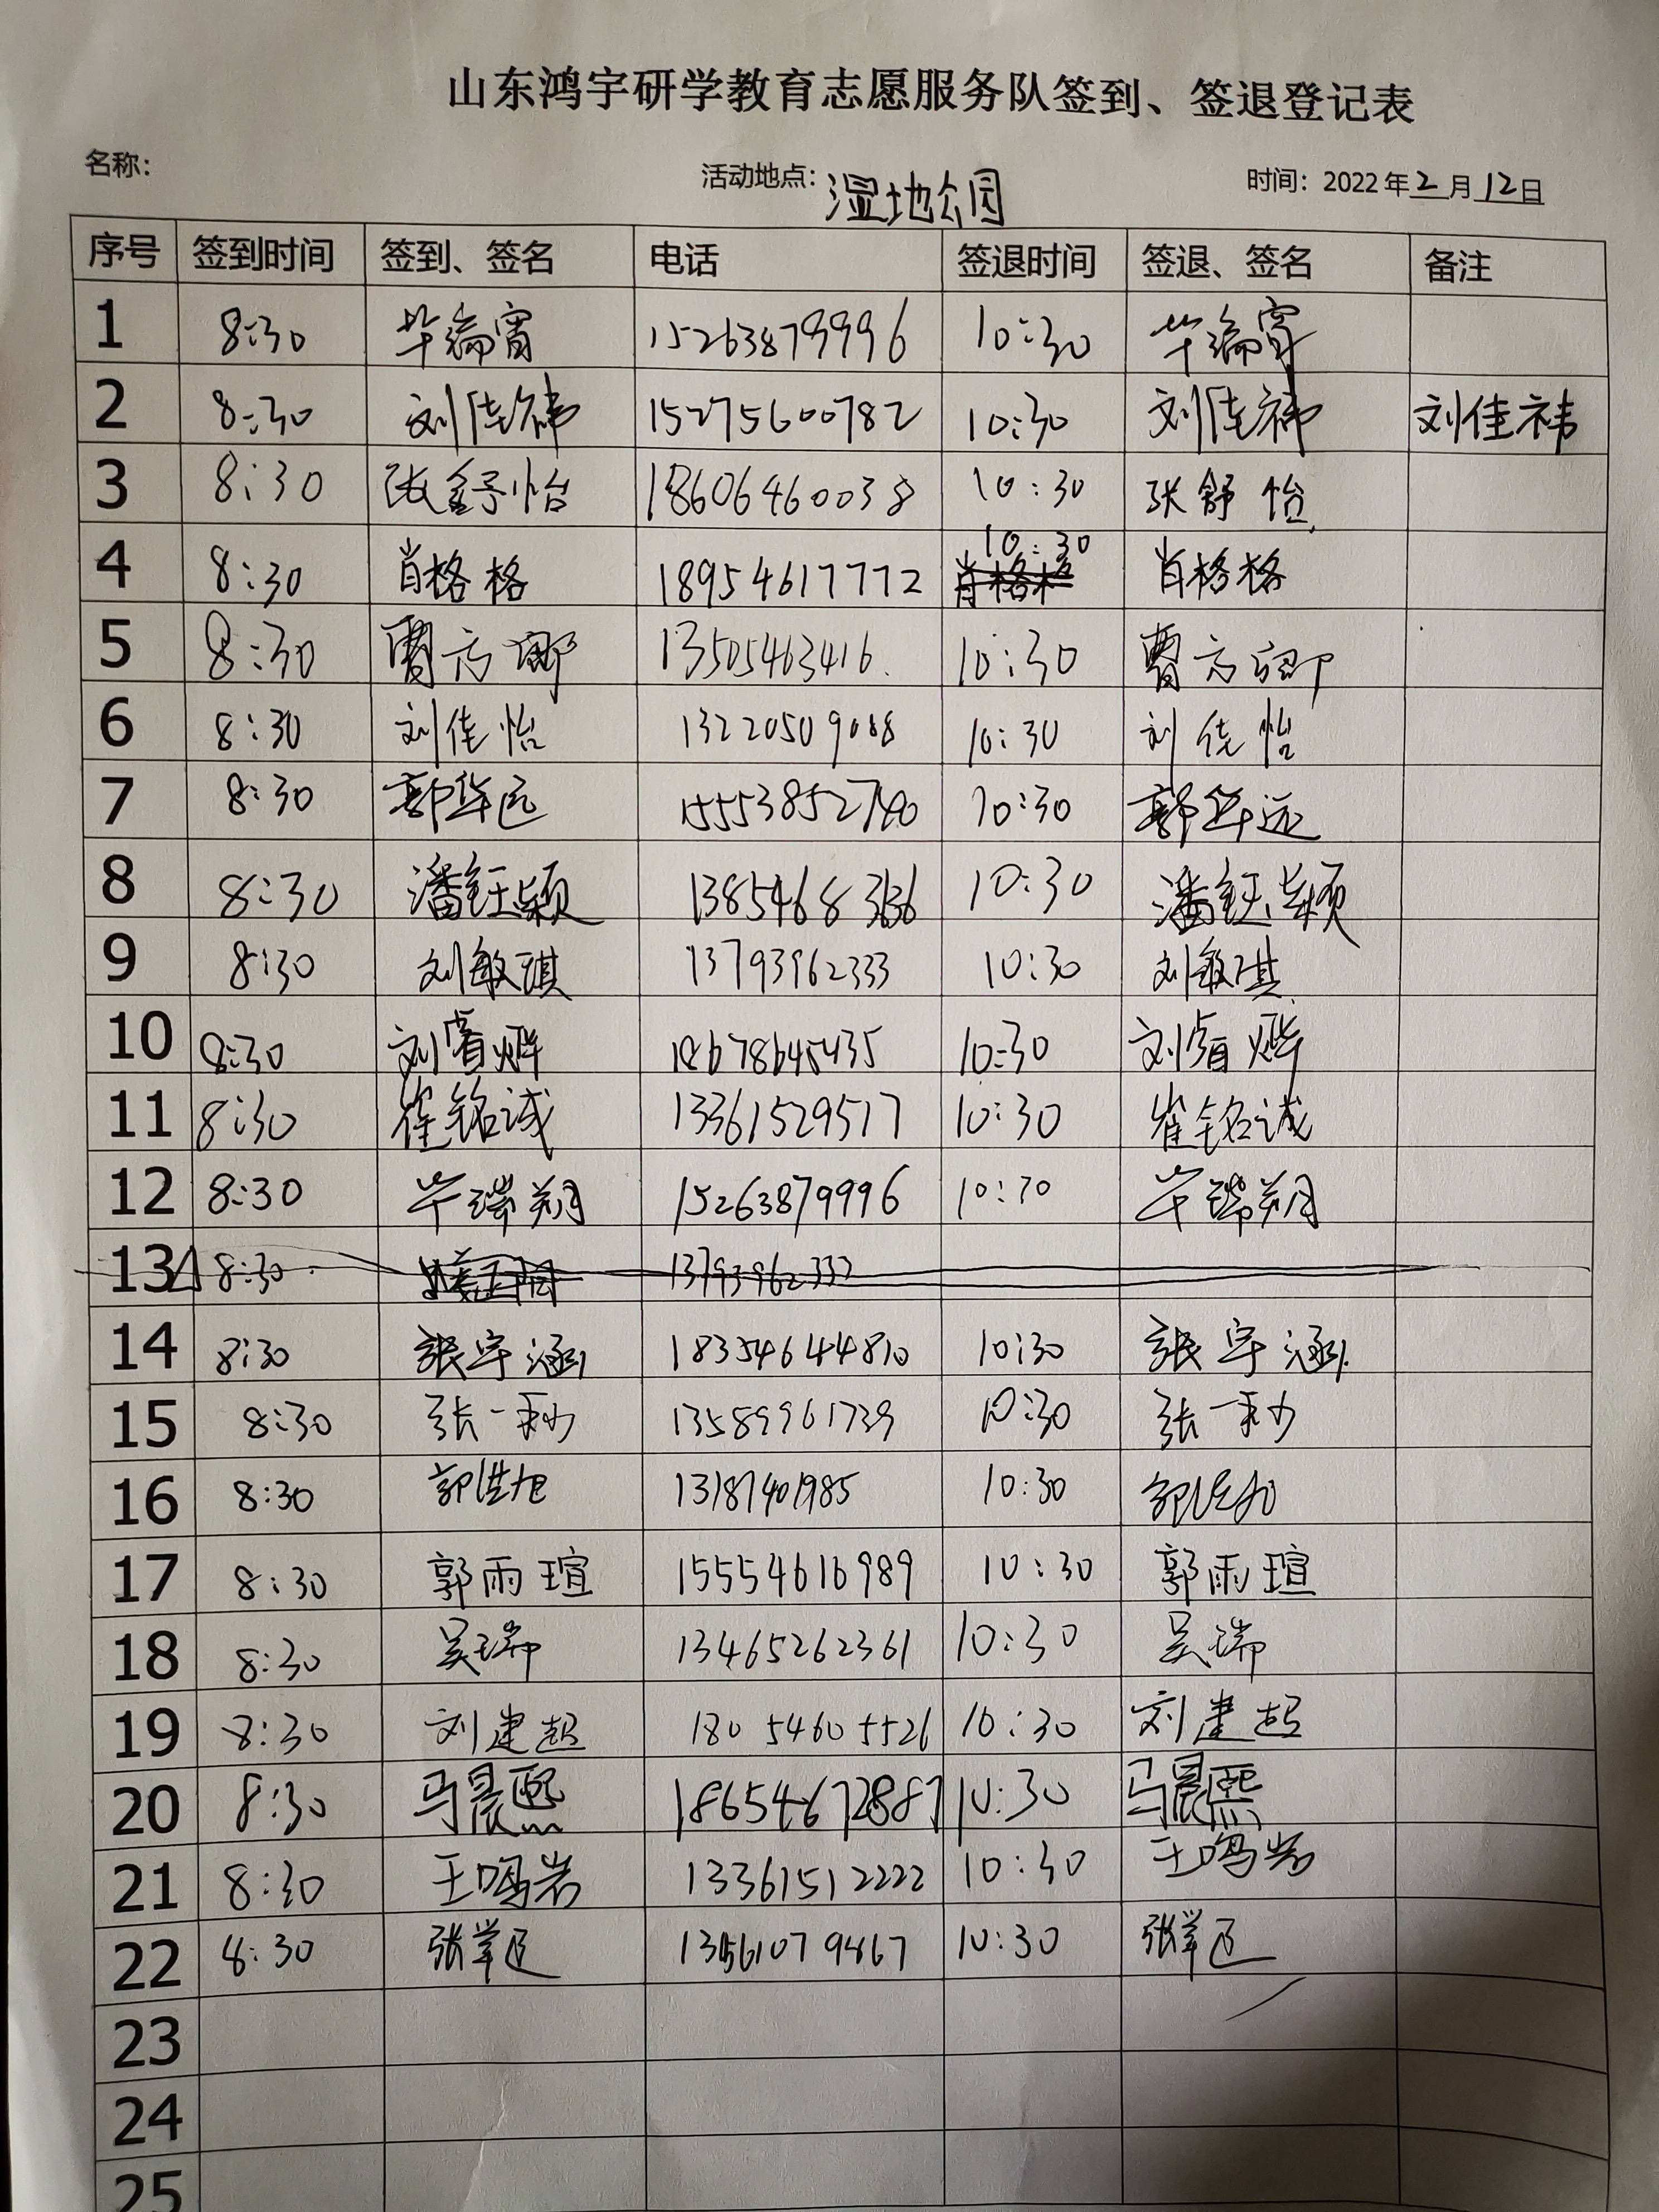 山东鸿宇研学教育志愿服务队签到、签退登记表
名称: 活动地点: 湿地公园 时间: 2022年2月12日
序号 签到时间 签到、签名 电话 签退时间 签退、签名 备注
1 8:30 毕瑞霄 15263879996 10:30 毕瑞霄
2 8:30 刘佳祎 15275600782 10:30 刘佳祎 刘佳祎
3 8:30 张舒怡 18606460038 10:30 张舒怡
4 8:30 肖格格 18954617772 10:30 肖格格
5 8:30 曹方卿 13505463416 10:30 曹方卿
6 8:30 刘佳怡 13220509088 10:30 刘佳怡
7 8:30 郭华远 15553852740 10:30 郭华远
8 8:30 潘钰颖 13854683636 10:30 潘钰颖
9 8:30 刘敏琪 13793962333 10:30 刘敏琪
10 8:30 刘 烨 18678645435 10:30 刘 烨
11 8:30 崔铭诚 13361529517 10:30 崔铭诚
12 8:30 毕瑞翔 15263879996 10:30 毕瑞翔
13 8:30 13793962333
14 8:30 张宇涵 18354644810 10:30 张宇涵
15 8:30 张一秒 13589961739 10:30 张一秒
16 8:30 郭浩旭 13187401985 10:30 郭浩旭
17 8:30 郭雨瑄 15554616989 10:30 郭雨瑄
18 8:30 吴瑞 13465262361 10:30 吴瑞
19 8:30 刘建超 18054605526 10:30 刘建超
20 8:30 马晨熙 18654672887 10:30 马晨熙
21 8:30 王鸣岩 13361512222 10:30 王鸣岩
22 8:30 张 10:30 张
23
24
25